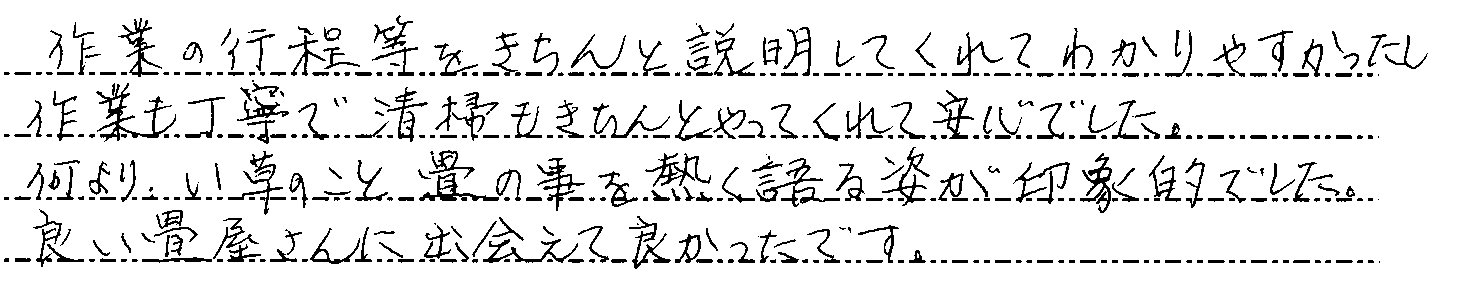 作業の行程等をきちんと説明してくれてわかりやすかったし
作業も丁寧で清掃もきちんとやってくれて安心でした。
何より、い草のこと畳の事を熱く語る姿が印象的でした。
良い畳屋さんに出会えて良かったです。